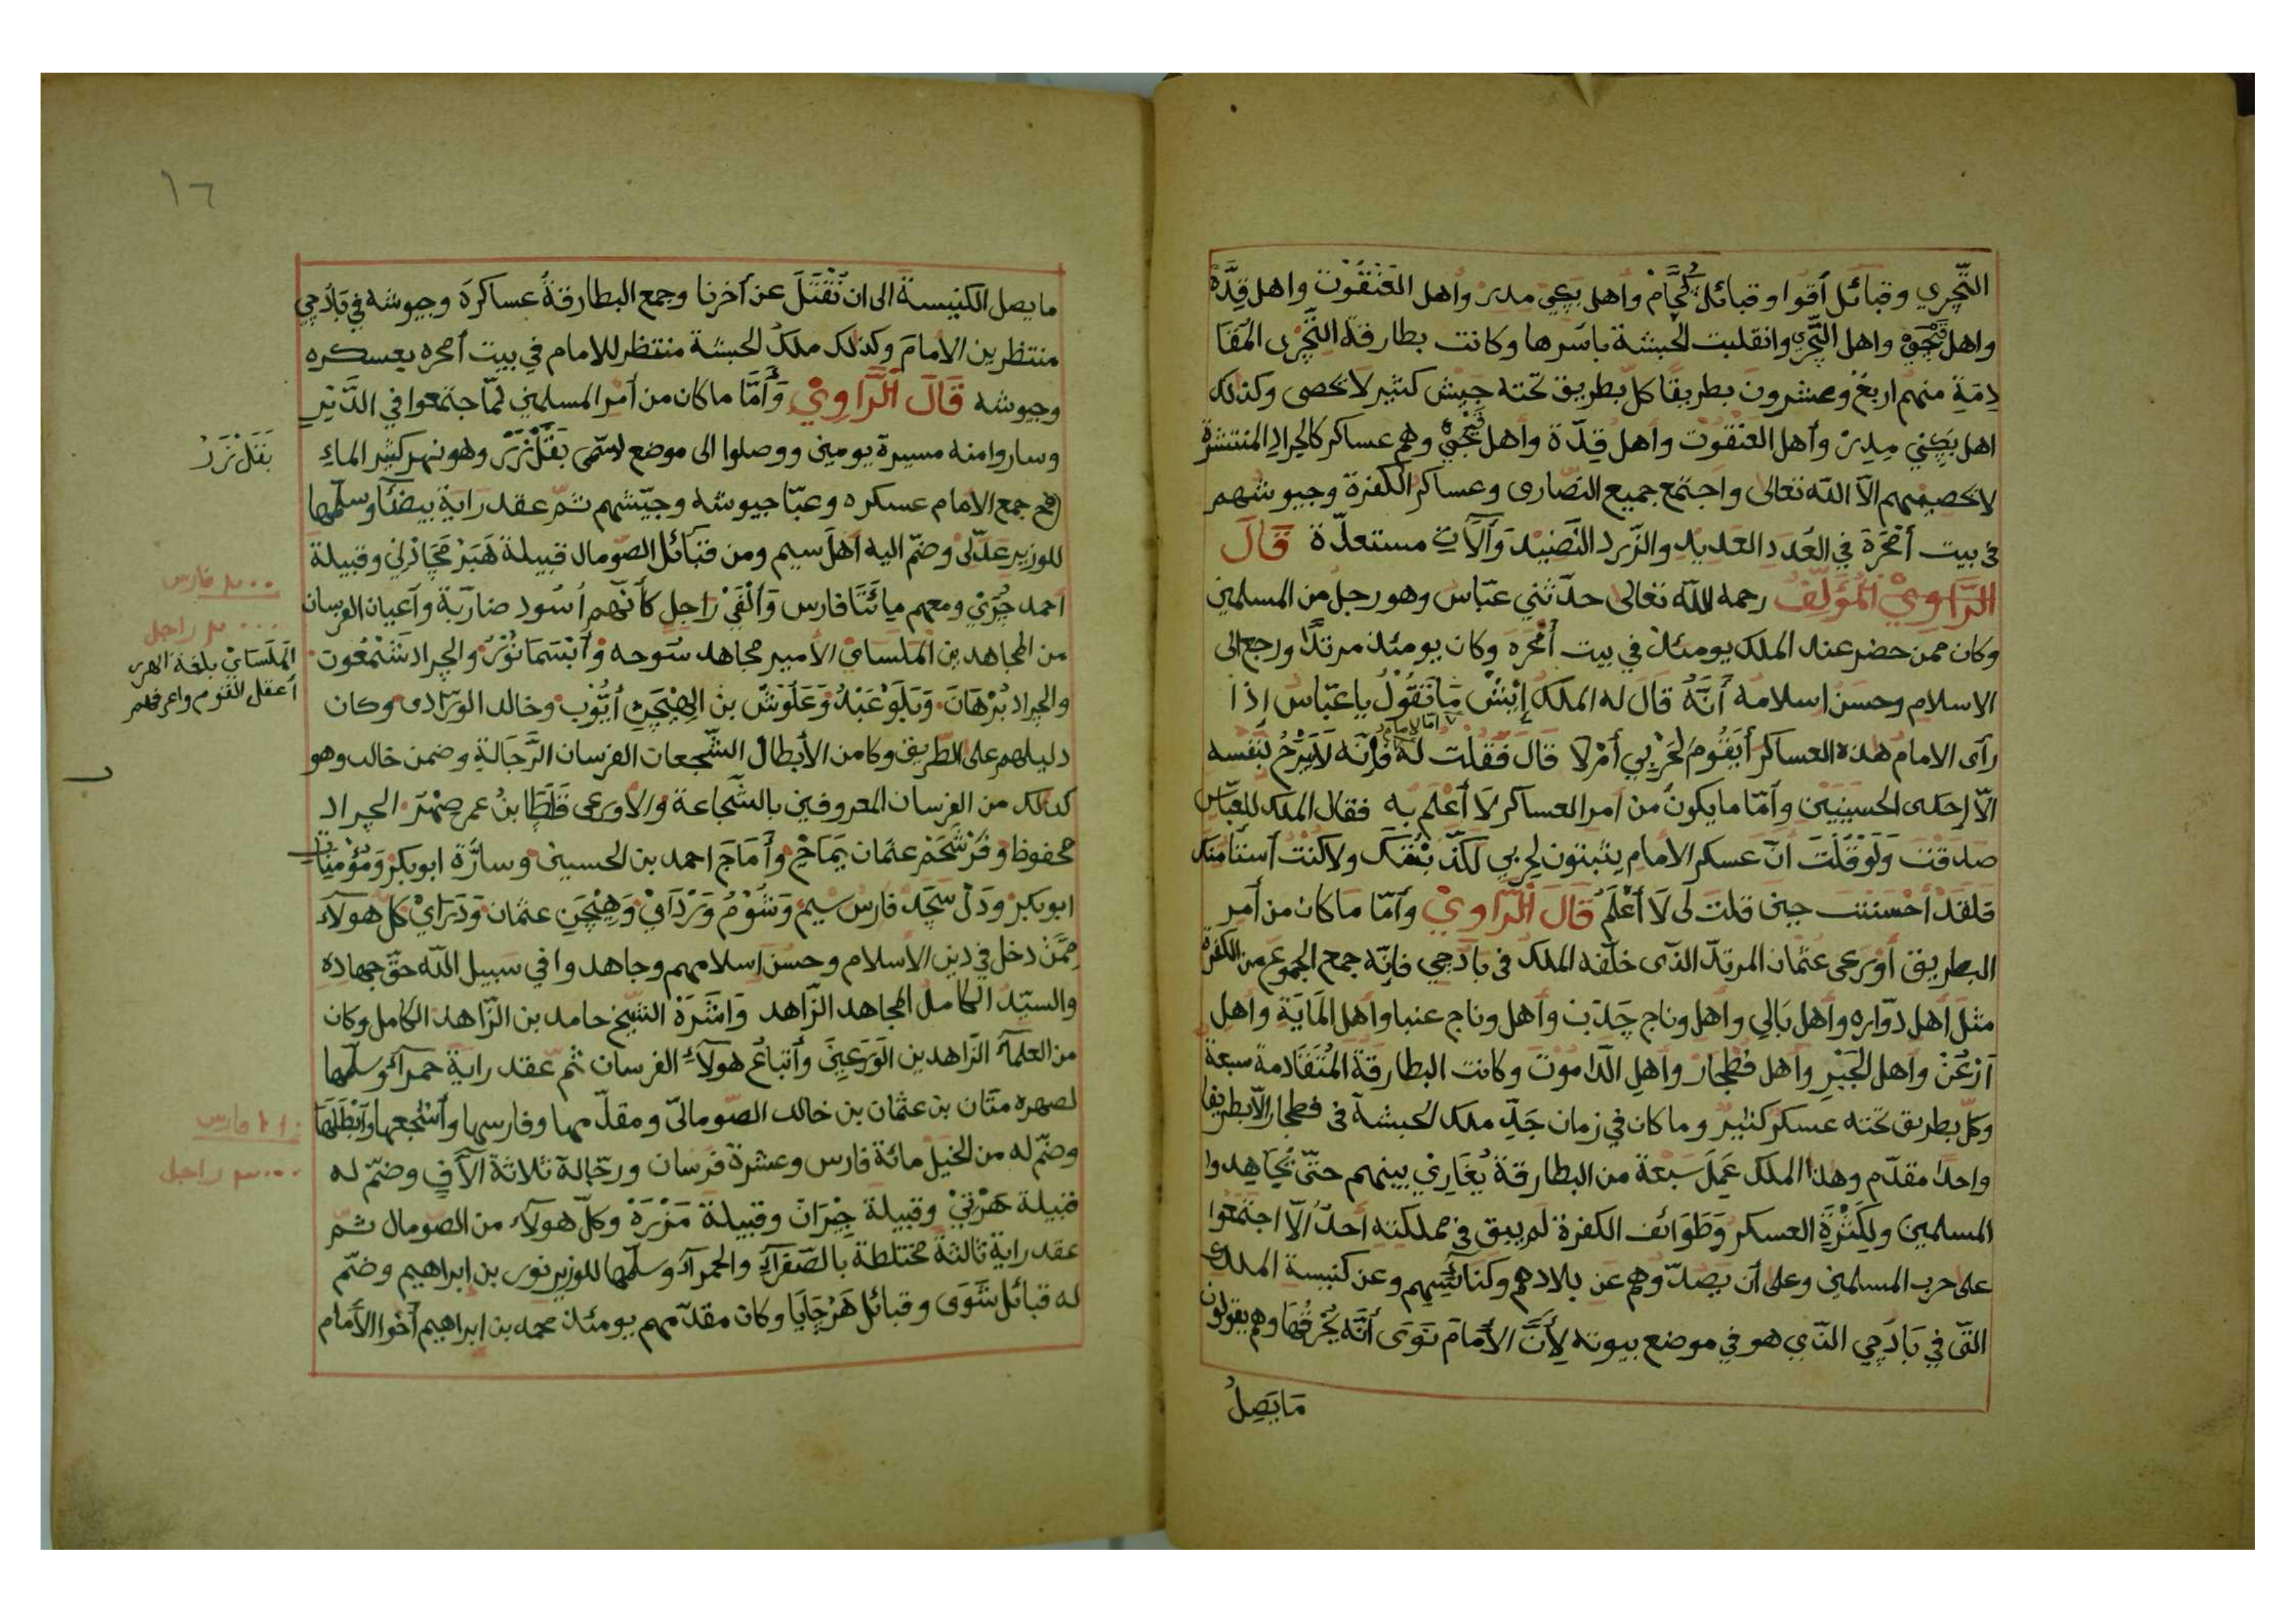 التّجري وقبائل أقوا وقبائل كجّام وأهل بجي مدر وأهل العنقوت واهل قدّة
واهل واهل التّجري وانقلبت الحبشة باسرها وكانت بطارقة التّجرى
منهم اربع وعشرون بطريقًا كلّ بطريق تحته جيش كثير لا يحصى وكذلك
اهل مدر وأهل العنقوت وأهل قدّة وأهل وهم عساكر كالجراد المنتشرة
لا يحصيهم الّا الله تعالى واجتمع جميع النصارى وعساكر الكفرة وجيوشهم
في بيت أمحرة في العدد العديد والزّرد النّضيد وآلات مستعدّة قال
الرّاوي المؤلّف رحمه الله تعالى حدّثني عبّاس وهو رجل من المسلمين
وكان ممن حضر عند الملك يومئذ في بيت أمحره وكان يومئذ مرتدًّا ورجع الى
الاسلام وحسن اسلامه أنّه قال له الملك إيش ما تقول يا عبّاس إذا
رأى الامام هذه العساكر أيقوم لحربي أم لا قال فقلت له امّا الامام فإنّه لا يبرح لنفسه
الّا إحدى الحسنيين وأمّا ما يكون من امر العساكر لا أعلم به فقال الملك للعبّاس
صدقت ولو قلت انّ عسكر الامام يثبتون لحربي لكذّبتك ولا كنت
فلقد أحسنت حين قلت لى لا أعلم قال الرّاوي وأمّا ما كان من أمر
البطريق أورعى عثمان المرتدّ الذى خلّفه الملك فى بادجي فإنّه جمع الجموع من الكفرة
مثل أهل دوّاره وأهل بالي واهل وناج جدب وأهل وناج عنبا وأهل الماية وأهل
أرعن واهل الجبر وأهل فطجار وأهل الداموت وكانت البطارقة المتقادمة سبعة
وكلّ بطريق تحته عسكر كثير وما كان في زمان جدّ ملك الحبشة فى فطجار الّا بطريقا
واحدًا مقدّم وهذا الملك عمل سبعة من البطارقة بينهم حتّى يجاهدوا
المسلمين ولكثرة العسكر وطوائف الكفرة لم يبق فى مملكته أحدٌ الّا اجتمعوا
على حرب المسلمين وعلى أن يصدّوهم عن بلادهم وكنائسهم وعن كنيسة الملك
التى في بادجي الذي هو في موضع بيوته لأنّ الأمام نوى أنّه يحرقها وهم يقولون
ما يصلُ
١٦
ما يصل الكنيسة الى ان نقتل عن آخرنا وجمع البطارقة عساكره وجيوشه في بادجي
منتظرين الأمام وكذلك ملك الحبشة منتظر للامام في بيت أمحره بعسكره
وجيوشه قال الرّاوي وأمّا ما كان من أمر المسلمين لمّا اجتمعوا في الدّير
وساروا منه مسيرة يومين ووصلوا الى موضع يسمّى بقل نزر وهو نهر كثير الماء
بقل نزر
جمع الامام عسكره وعبّا جيوشه وجيّشهم ثمّ عقد راية بيضآ وسلّمها
للوزير عدّلى وضمّ اليه أهل سيم ومن قبائل الصّومال قبيلة هبر مجادرلي وقبيلة
٢٠٠ فارس
احمد جري ومعهم مائتا فارس وألفي راجل كأنّهم أسود ضاريّة وأعيان الفرسان
٢٠٠٠ راجل
من المجاهدين الملساي الأمير مجاهد سوحه وأبسما نور والجراد شمعون
الملساي بلغة الهرر
أعقل القوم واعرفهم
والجراد برهان وبلو عبد وعلوش بن الهيجن أيّوب وخالد الورّادى وكان
دليلهم على الطّريق وكا من الأبطال الشّجعات الفرسان الرّجالة وضمن خالد وهو
كذلك من الفرسان المعروفين بالشّجاعة والاورعى قلطا بن عمر صهر الجراد
محفوظ وقرشحم عثمان يماج وأماج احمد بن الحسين وسارّة ابوبكر ومؤمينات
ابوبكر ودل سجد فارس سيم وشوم ورداي وهيجن عثمان وبراي كل هولآء
ممّن دخل في دين الأسلام وحسن إسلامهم وجاهدوا في سبيل الله حقّ جهاده
والسيّد الكامل المجاهد الزّاهد الشيخ حامد بن الزّاهد الكامل وكان
من العلمآء الزاهدين الورعين وأتباع هولآء الفرسان ثمّ عقد راية حمرآء وسلّمها
لصهره متّان بن عثمان بن خالد الصّومالىّ ومقدّمها وفارسها وأشجعها وأبطلها
١١٠ فارس
وضمّ له من الخيل مائة فارس وعشرة فرسان ورجّالة ثلاثة آلاف وضمّ له
٣٠٠٠ راجل
قبيلة هرتي وقبيلة جيران وقبيلة مزره وكلّ هولآء من الصّومال ثمّ
عقد راية ثالثة مختلطة بالصّفرآء والحمرآء وسلّمها للوزير نور بن ابراهيم وضمّ
له قبائل شوى وقبائل هرجايا وكان مقدّمهم يومئذ محمد بن ابراهيم أخو الأمام